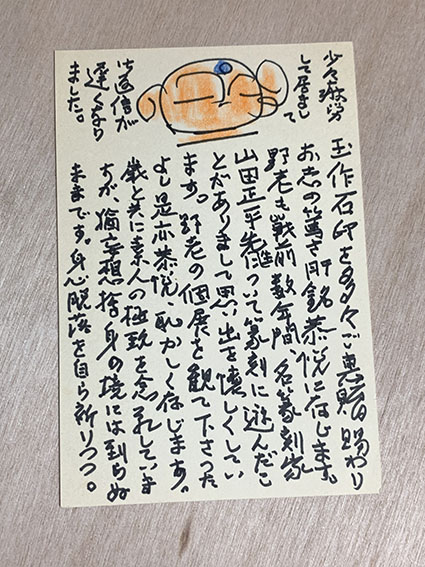 少々疲労
して居まし
て
玉作石印を多々ご恵贈賜わり
お志の篤さ肝銘恭悦に存じます。
野老も戦前数年間、名篆刻家
山田正平先生について篆刻に遊んだこ
とがありまして思い出を懐しくしてい
ます。野老の個展を観て下さった
よし是亦恭悦、恥かしく存じます。
戯と共に素人の極致を念孔していま
すが、猶妄想捨身の境には到らぬ
ままです。身心脱落を自ら祈りつつ。
ご返信が
遅くなり
ました。